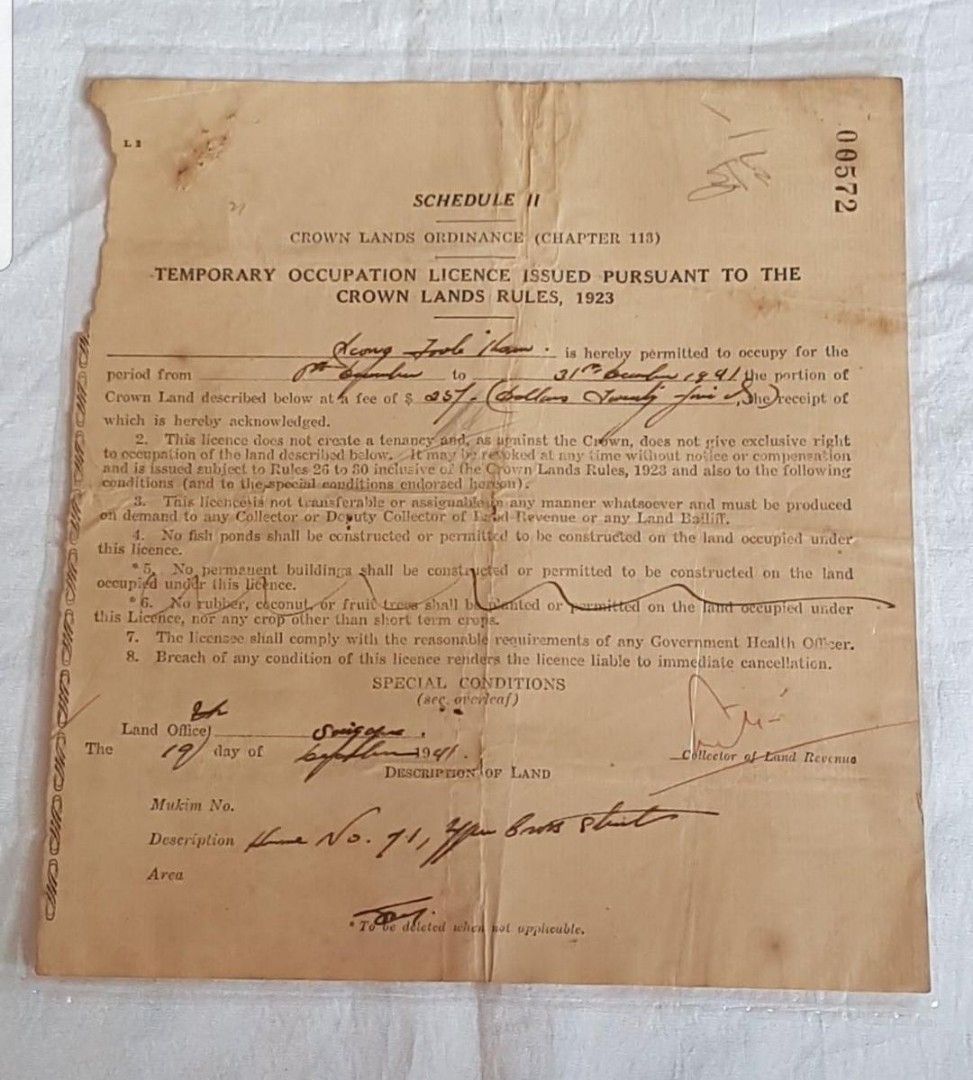 L 2
00572
SCHEDULE II
CROWN LANDS ORDINANCE (CHAPTER 113)
TEMPORARY OCCUPATION LICENCE ISSUED PURSUANT TO THE
CROWN LANDS RULES, 1923
is hereby permitted to occupy for the
period from to 31st December 1941 the portion of
Crown Land described below at a fee of $ 25/- (Dollars Twenty five) the receipt of
which is hereby acknowledged.
2. This licence does not create a tenancy and, as against the Crown, does not give exclusive right
to occupation of the land described below. It may be revoked at any time without notice or compensation
and is issued subject to Rules 26 to 30 inclusive of the Crown Lands Rules, 1923 and also to the following
conditions (and to the special conditions endorsed hereon).
3. This licence is not transferable or assignable in any manner whatsoever and must be produced
on demand to any Collector or Deputy Collector of Land Revenue or any Land Bailiff.
4. No fish ponds shall be constructed or permitted to be constructed on the land occupied under
this licence.
*5. No permanent buildings shall be constructed or permitted to be constructed on the land
occupied under this licence.
*6. No rubber, coconut, or fruit trees shall be planted or permitted on the land occupied under
this Licence, nor any crop other than short term crops.
7. The licensee shall comply with the reasonable requirements of any Government Health Officer.
8. Breach of any condition of this licence renders the licence liable to immediate cancellation.
SPECIAL CONDITIONS
(see overleaf)
Land Office, Singapore.
The 19 day of September 1941.
Collector of Land Revenue
DESCRIPTION OF LAND
Mukim No.
Description House No. 71, Upper Cross Street
Area
* To be deleted when not applicable.